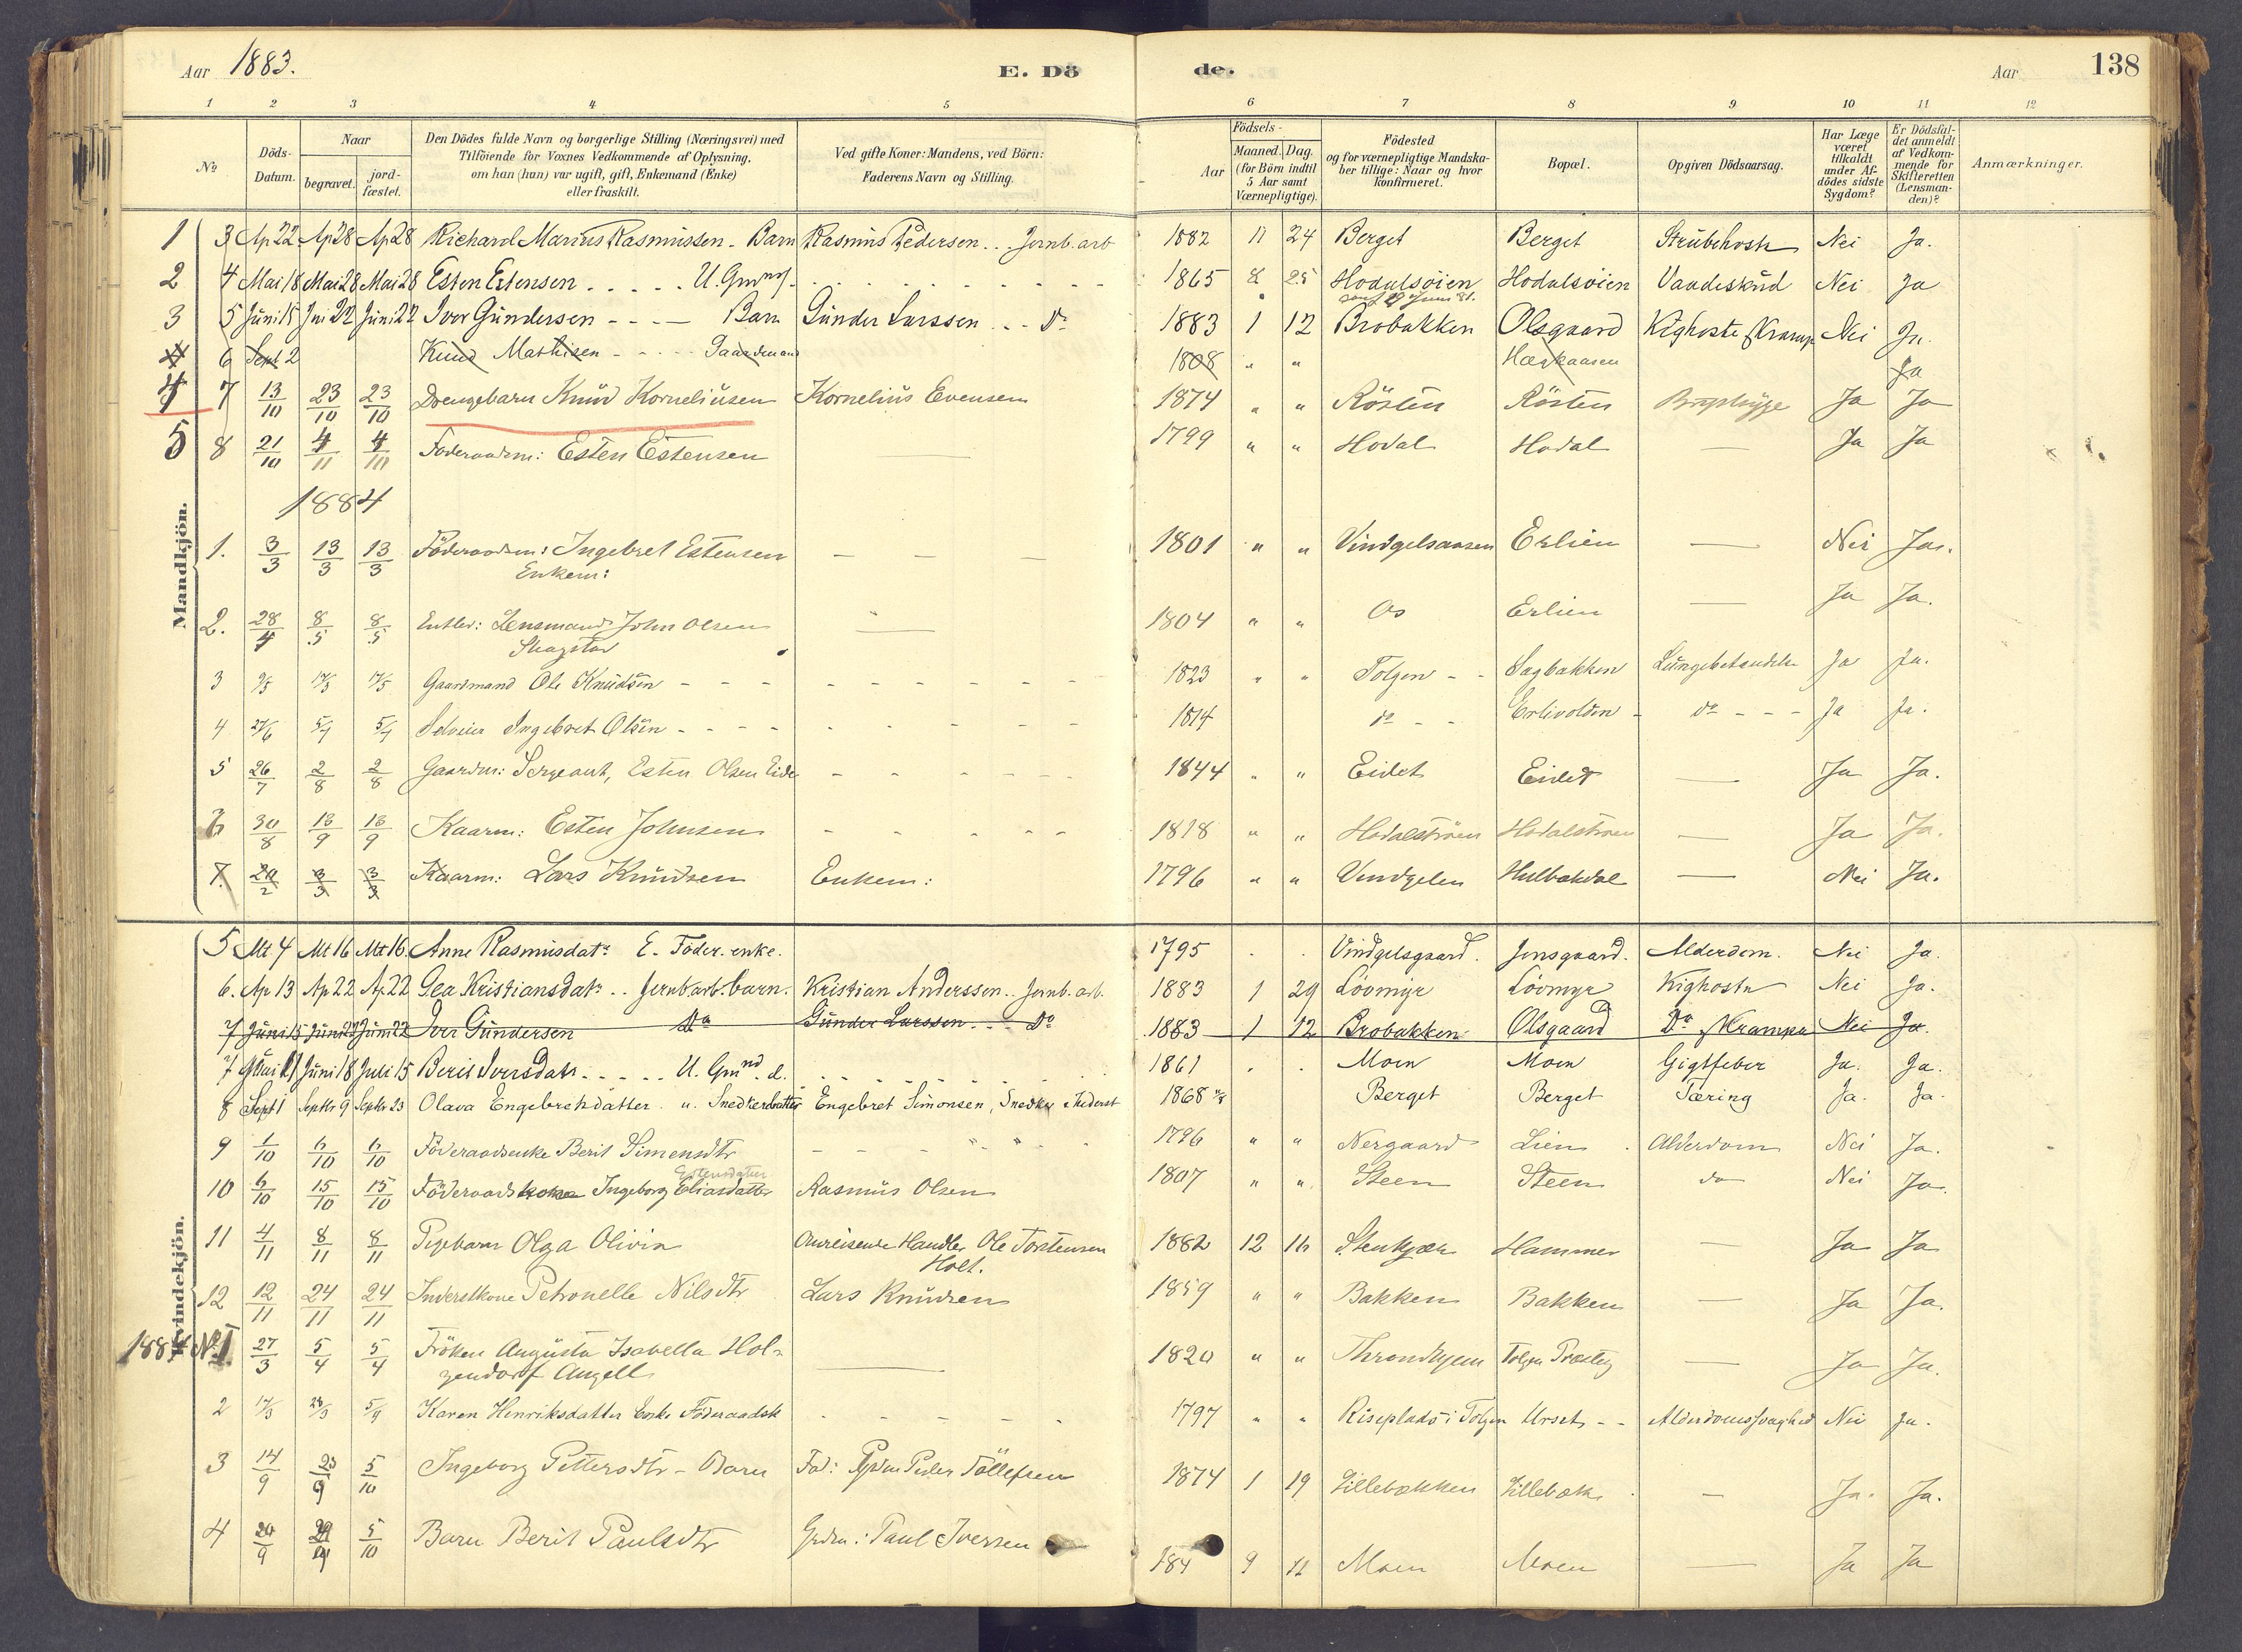 Aar 1883. E. Dö de. Aar 138
1 2 3 4 5 6 7 8 9 10 11 12
No
Döds-Datum.
Naar
begravet. jord-fæstet.
Den Dödes fulde Navn og borgerlige Stilling (Næringsvei) med
Tilföiende for Voxnes Vedkommende af Oplysning,
om han (hun) var ugift, gift, Enkemand (Enke)
eller fraskilt.
Ved gifte Koner: Mandens, ved Börn:
Faderens Navn og Stilling.
Aar
Födsels-
Maaned. Dag.
(for Börn indtil
5 Aar samt
Værnepligtige).
Födested
og for værnepligtige Mandska-
ber tillige: Naar og hvor
konfirmeret.
Bopæl.
Opgiven Dödsaarsag.
Har Læge
været
tilkaldt
under Af-
dödes sidste
Sygdom?
Er Dödsfal-
det anmeldt
af Vedkom-
mende for
Skifteretten
(Lensman-
den)?
Anmærkninger.
Mandkjön.
1 3 Ap 22 Ap 28 Ap 28 Richard Marius Rasmussen - Barn Rasmus Pedersen . . Jernb. arb 1882 11 24 Berget Berget Strubehoste Nei Ja.
2 4 Mai 18 Mai 28 Mai 28 Esten Estensen . . . . . U. Gmnd 1865 8 25 Hodalsöien Hodalsöien Vaadeskud Nei Ja
3 5 Juni 15 Jni 22 Juni 22 Iver Gundersen - - - - Barn Gunder Larssen . . . Do 1883 1 12 Brobakken Olsgaard Kighoste & Krampe Nei Ja.
6 Sept 2 Knud Mathisen - - - - - Gaardmand 1808 " " Ja
4 7 13/10 23/10 23/10 Drengebarn Knud Korneliusen Kornelius Evensen 1874 " " Rösten Rösten Ja Ja
5 8 21/10 4/11 4/11 Föderaadsm: Esten Estensen — 1799 " " Hodal Hodal — Ja Ja
1884
1. 3/3 13/3 13/3 Föderaadsm: Ingebret Estensen — — — 1801 " " Vindgelsaasen Erlien — Nei Ja.
Enkem:
2. 28/4 8/5 8/5 Entled: Lensmand John Olsen — 1804 " " Os Erlien — Ja Ja.
3 9/5 17/5 17/5 Gaardmand Ole Knudsen - - - 1823 " " Tolgen - - Sagbakken Lungebetændelse Ja Ja.
4 27/6 5/7 5/7 Selveier Ingebret Olsen - - - - 1814 do - - Erlivolden - do - - - Ja Ja.
5 26/7 2/8 2/8 Gaardm: Sergeant, Esten Olsen Eide 1844 " " Eidet Eidet — Ja Ja.
6 30/8 13/9 13/9 Kaarm: Esten Johnsen 1818 " " Hodalströen Hodalströen — Ja Ja.
7. 20/2 3/3 3/3 Kaarm: Lars Knudsen Enkem: 1796 " " Vindgelen Hulbakdal — Nei Ja.
Kvindekjön.
5 Mt 4 Mt 16 Mt 16. Anne Rasmusdatr E. Föder. enke. 1795 . . Vindgelsgaard. Jensgaard. Alderdom. Nei Ja.
6. Ap 13 Ap 22 Ap 22 Gea Kristiansdatr . . Jernb arb. barn. Kristian Anderssen . . Jernb. arb. 1883 1 29 Lövmyr Lövmyr Kighoste Nei Ja.
7 Juni 15 Juni 22 Juni 22 Iver Gundersen Do Gunder Larssen . . . Do 1883 1 12 Brobakken Olsgaard Do & Krampe Nei Ja.
7 Juni 18 Juli 15 Berit Iversdatr . . . . . U. Gmnd. d. 1861 . . Moen Moen Gigtfeber Ja. Ja.
8 Sept 1 Septbr 9 Septbr 23 Olava Engebretsdatter . u. Snedkerdatter Engebret Simonsen, Snedker & Inderst 1868 Berget Berget Tæring Ja. Ja.
9 1/10 6/10 6/10 Föderaadsenke Berit Simensdtr 1796 " " Nergaard Lien . Alderdom Nei Ja.
Estensdatter
10 6/10 15/10 15/10 Föderaadskone Ingeborg Eliasdatter Rasmus Olsen 1807 " " Steen Steen do Nei Ja.
11 4/11 8/11 8/11 Pigebarn Olga Olivia Omreisende Handler Ole Torstensen 1882 12 16 Stenkjær Hammer — Ja Ja
Holt.
12 12/11 24/11 24/11 Inderstkone Petronelle Nilsdtr Lars Knudsen 1859 " " Bakken Bakken — Ja Ja.
1884 No 1. 27/3 5/4 5/4 Fröken Augusta Isabella Hol- — 1820 " " Throndhjem Tolgen Præsteg — Ja Ja.
zendorf Angell
2 17/3 Karen Henriksdatter Enke Föderaadsk 1797 " " Riseplads i Tolgen Urset - - Alderdomssvaghed Nei Ja.
3 14/9 23/9 5/10 Ingeborg Pettersdtr - Barn Fad: Grdm Peder Tollefsen 1874 1 19 Lillebækken Lillebæk — Ja. Ja.
4 20/9 5/10 Barn Berit Paulsdtr Grdm: Paul Iversen 184 9 11 Moen Moen — Ja Ja